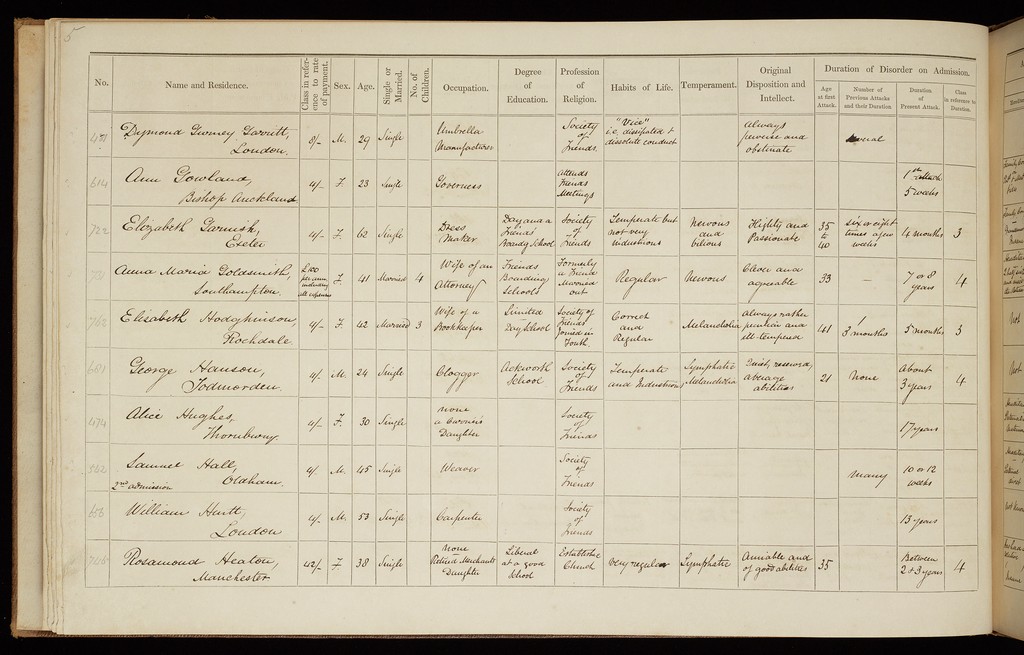 5
No.
Name and Residence.
Class in refer-
ence to rate
of payment.
Sex.
Age.
Single or
Married.
No. of
Children.
Occupation.
Degree
of
Education.
Profession
of
Religion.
Habits of Life.
Temperament.
Original
Disposition and
Intellect.
Duration of Disorder on Admission.
Age
at first
Attack.
Number of
Previous Attacks
and their Duration
Duration
of
Present Attack.
Class
in reference to
Duration.
London.
8/- M. 29 Single
Umbrella
Manufacturer
Society
of
Friends.
"Vice"
i.e. dissipated &
dissolute conduct
Always
perverse and
obstinate
several
614
Ann Gowland,
Bishop Auckland
4/- F. 23 Single
Governess
Attends
Friends
Meetings
1st attack
5 weeks
722
Elizabeth Garnish,
Exeter
4/- F. 62 Single
Dress
Maker
Day and a
Friends'
Boardg School
Society
of
Friends
Temperate but
not very
industrious
Nervous
and
bilious
Flighty and
Passionate
35
to
40
six or eight
times a few
weeks
4 months
3
Anna Maria Goldsmith,
Southampton.
£100
per ann.
including
all expenses
F. 41 Married 4
Wife of an
Attorney
Friends
Boarding
Schools
Formerly
a Friend
Married
out
Regular
Nervous
Clever and
agreeable
33
–
7 or 8
years
4
762
Elizabeth Hodgkinson,
Rochdale
4/- F. 42 Married 3
Wife of a
Bookkeeper
Limited
Day School
Society of
Friends
joined in
Youth.
Correct
and
Regular
Melancholia
Always rather
peculiar and
ill-tempered
41
1
3 months
5 months
3
George Hanson,
Todmorden.
4/- M. 24 Single
Clogger
Ackworth
School
Society
of
Friends
Temperate
and Industrious
Symphatic
Melancholia
Quiet, reserved,
average
abilities
21
None
About
3 years
4
474
Alice Hughes,
Thornbury
4/- F. 30 Single
none
Daughter
Society
of
Friends
17 years
562
Samuel Hall,
2nd admission
Oldham.
4/- M. 45 Single
Weaver
Society
of
Friends
Many
10 or 12
weeks
London
4/- M. 53 Single
Carpenter
Society
of
Friends
13 years
Rosamond Heaton,
Manchester
42/- F. 38 Single
none
Retired Merchants
Daughter
Liberal
at a good
School
Church
Very regular
Symphatic
Amiable and
of good abilities
35
Between
2 & 3 years
4